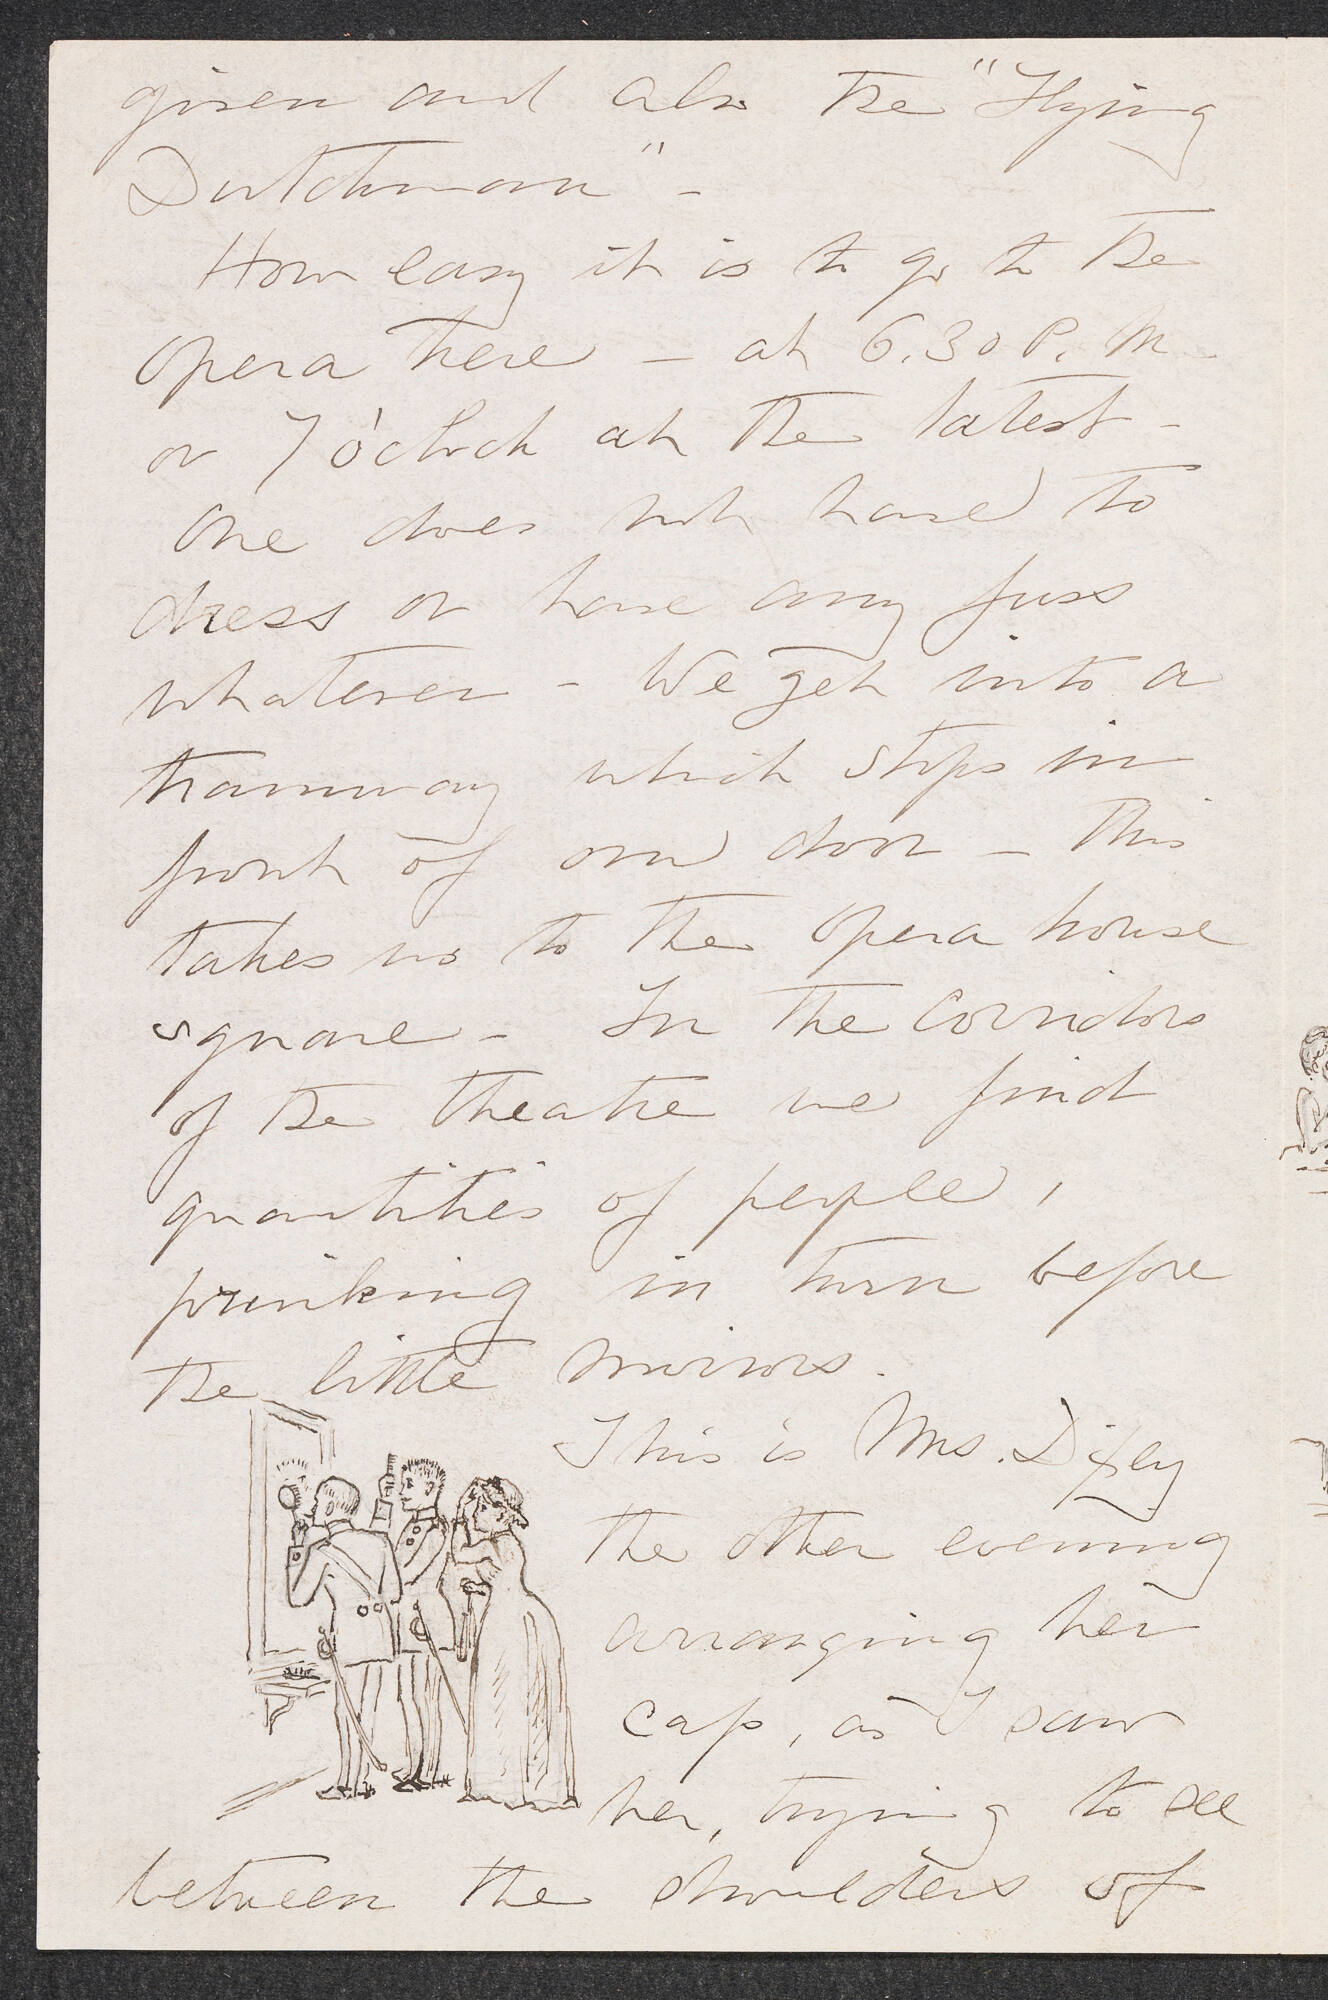 given and also the "Flying
Dutchman" -
How easy it is to go to the
opera here - at 6.30 P. M.
or 7 o'clock at the latest -
One does not have to
dress or have any fuss
whatever - We get into a
tramway which stops in
front of our door - This
takes us to the opera house
square - In the corridors
of the theatre we find
quantities of people,
prinking in turn before
the little mirrors.
This is Mrs. Dixey
the other evening
arranging her
cap, as I saw
her, trying to see
between the shoulders of